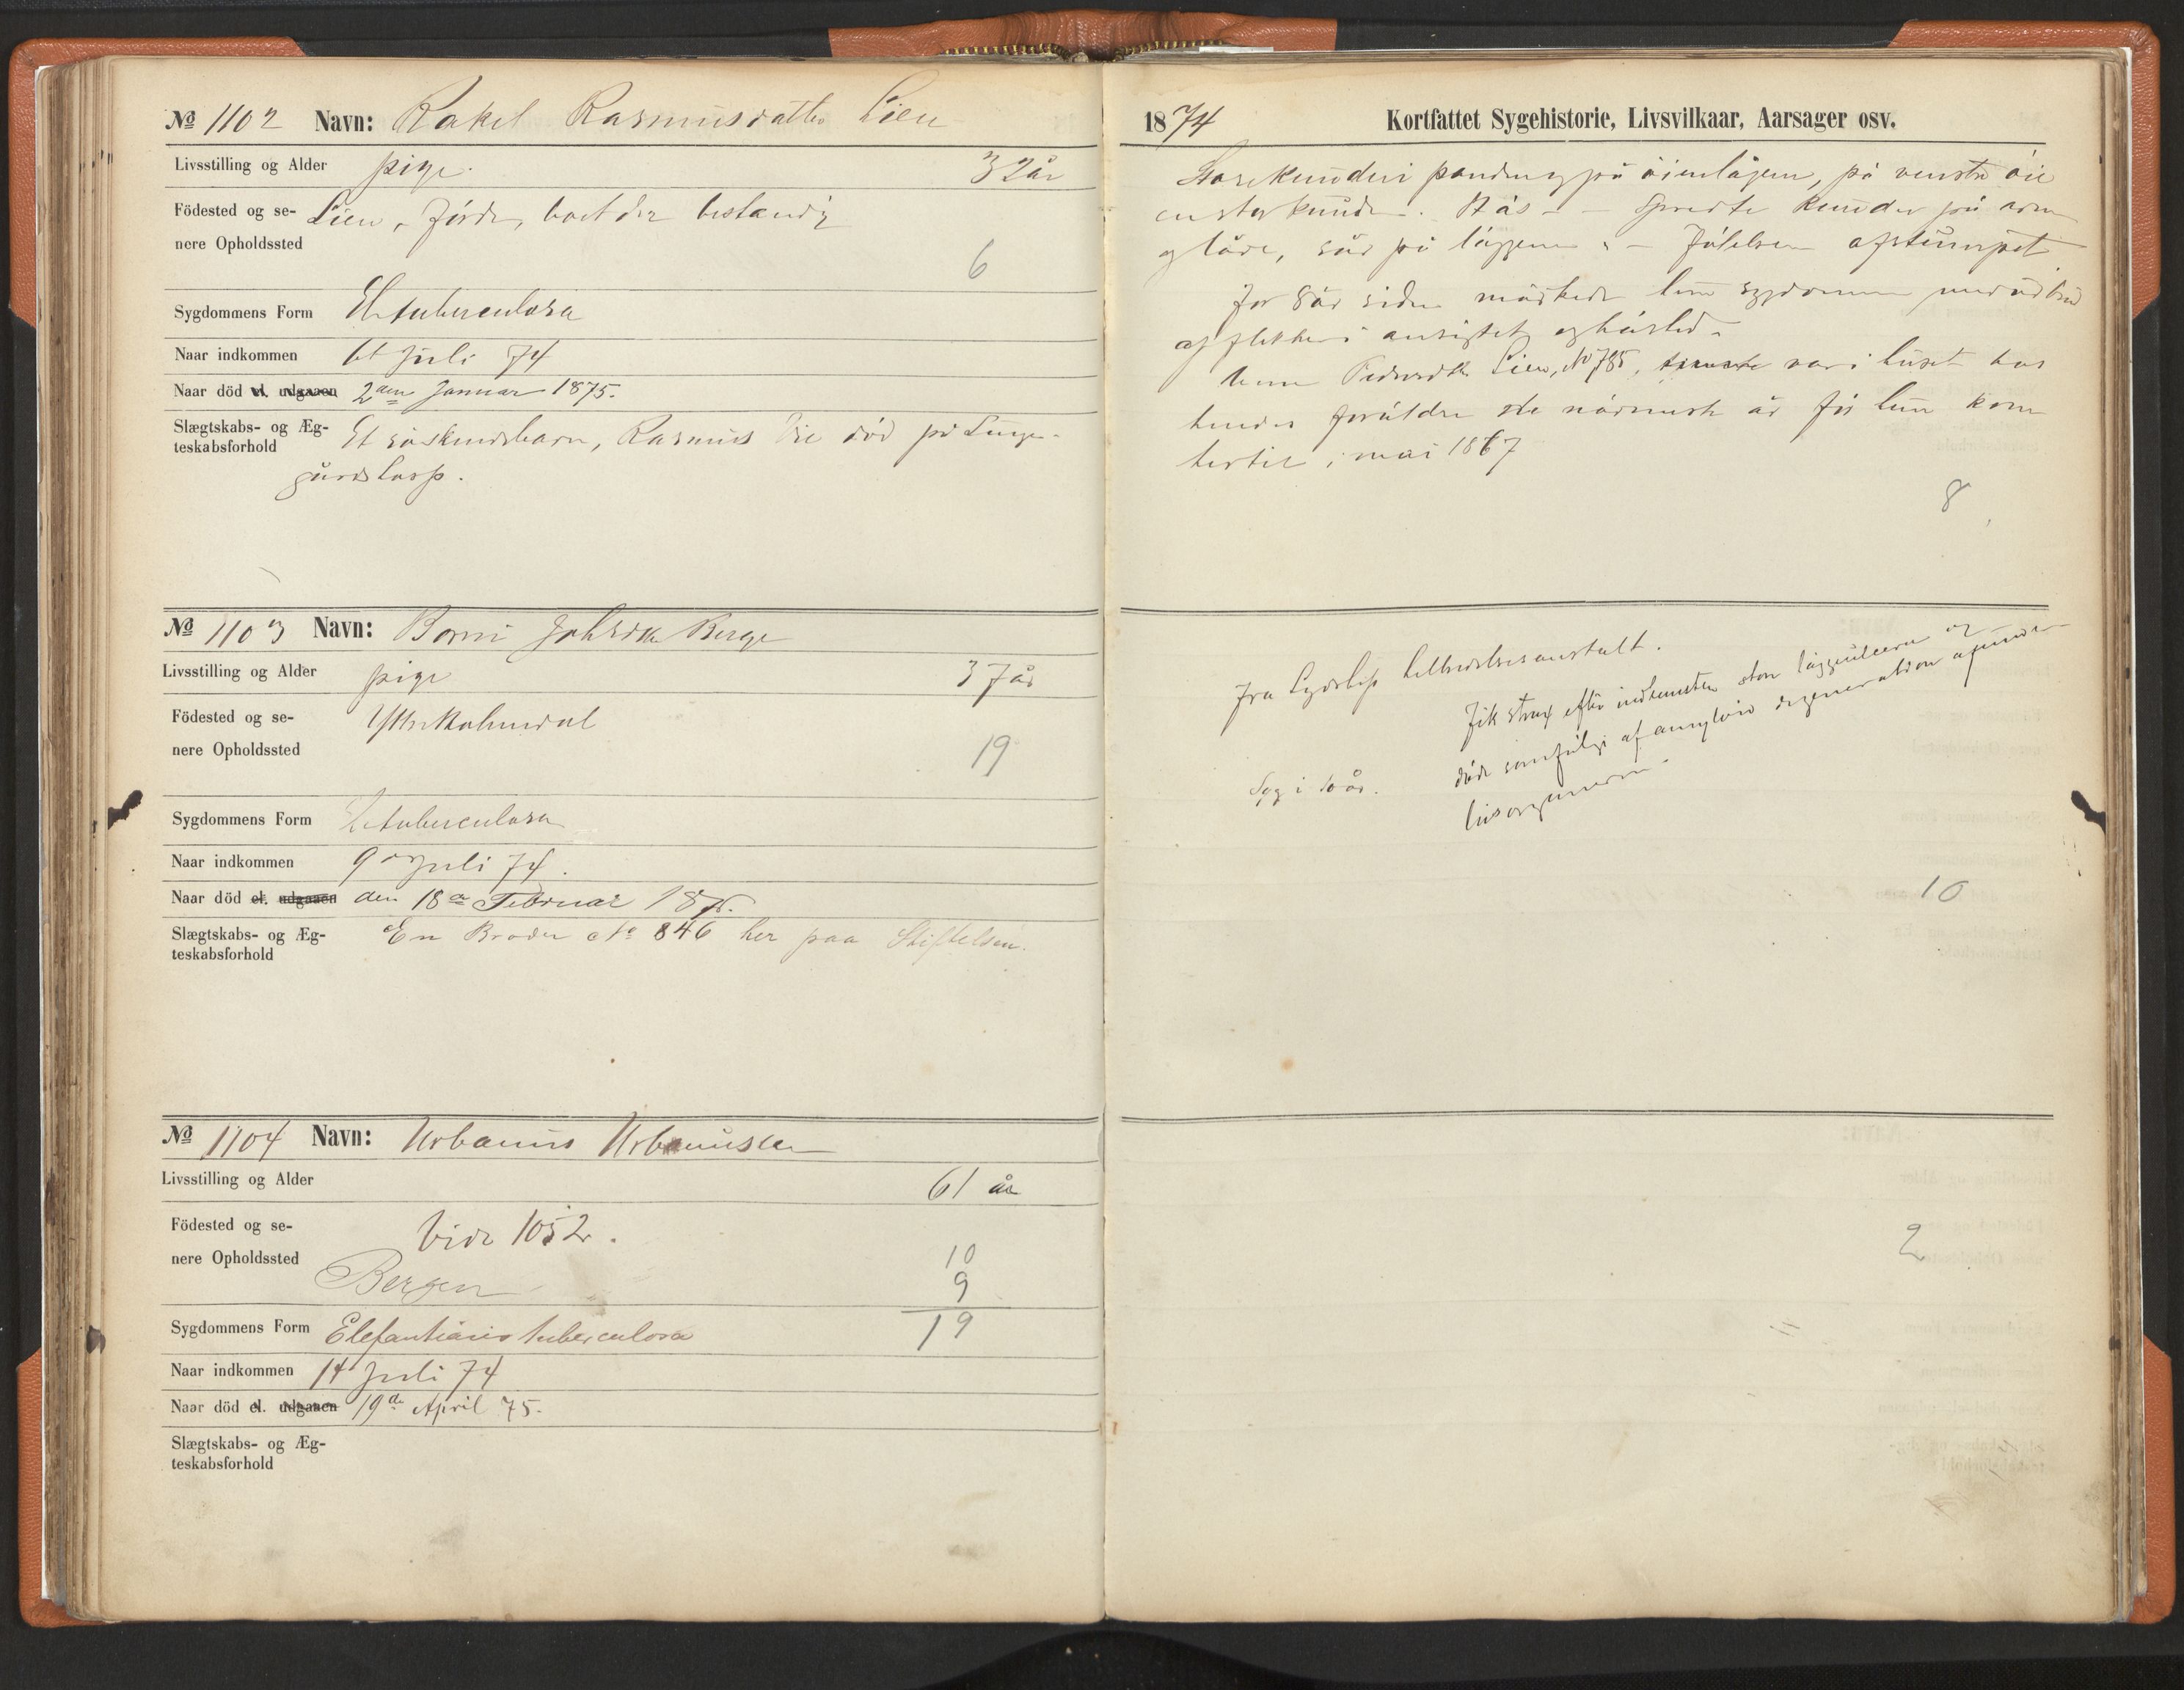 № 1102 Navn: Rakel Rasmusdatter Lien
Livsstilling og Alder pige. 32 år
Födested og se- Lien, Förde, boet der bestandig
nere Opholdssted
6
Sygdommens Form El. tuberculosa
Naar indkommen 6t Juli 74
Naar död el. udgaaen 2den Januar 1875.
Slægtskabs- og Æg- Et söskendebarn, Rasmus död på Lunge-
teskabsforhold
gårdshosp.
№ 1103 Navn: Johsdtr Berge
Livsstilling og Alder pige 37 år
Födested og se- Ytreholmedal
nere Opholdssted
19
Sygdommens Form El. tuberculosa
Naar indkommen 9de Juli 74.
Naar död el. udgaaen den 18de Februar 1875.
Slægtskabs- og Æg- En Broder No 846 her paa Stiftelsen.
teskabsforhold
№ 1104 Navn: Urbanus Urbanussen
Livsstilling og Alder 61 år
Födested og se- vide 1052.
nere Opholdssted 10
Bergen 9
Sygdommens Form Elefantiasis tuberculosa 19
Naar indkommen 14 Juli 74
Naar död el. udgaaen 19de April 75.
Slægtskabs- og Æg-
teskabsforhold
1874 Kortfattet Sygehistorie, Livsvilkaar, Aarsager osv.
Store knuder i panden og på öienlågene, på venstre öie
en stor knude. Hæs – Spredte knuder på arme
og låre, sår på læggene – Fölelsen afstumpet
For 8 år siden mærkede hun sygdommen med udbrud
af flekker i ansigtet og håshed –
Lien, No 785, tjente var i huset hos
hendes forældre det nærmeste år för hun kom
hertil i mai 1867
8
Fra Lyderhjs helbredelsesanstalt.
Fik strax efter indkomsten store lægulcera og
döde som fölge af amyloid degeneration af
livsorganerne.
Syg i 10 år.
10
2